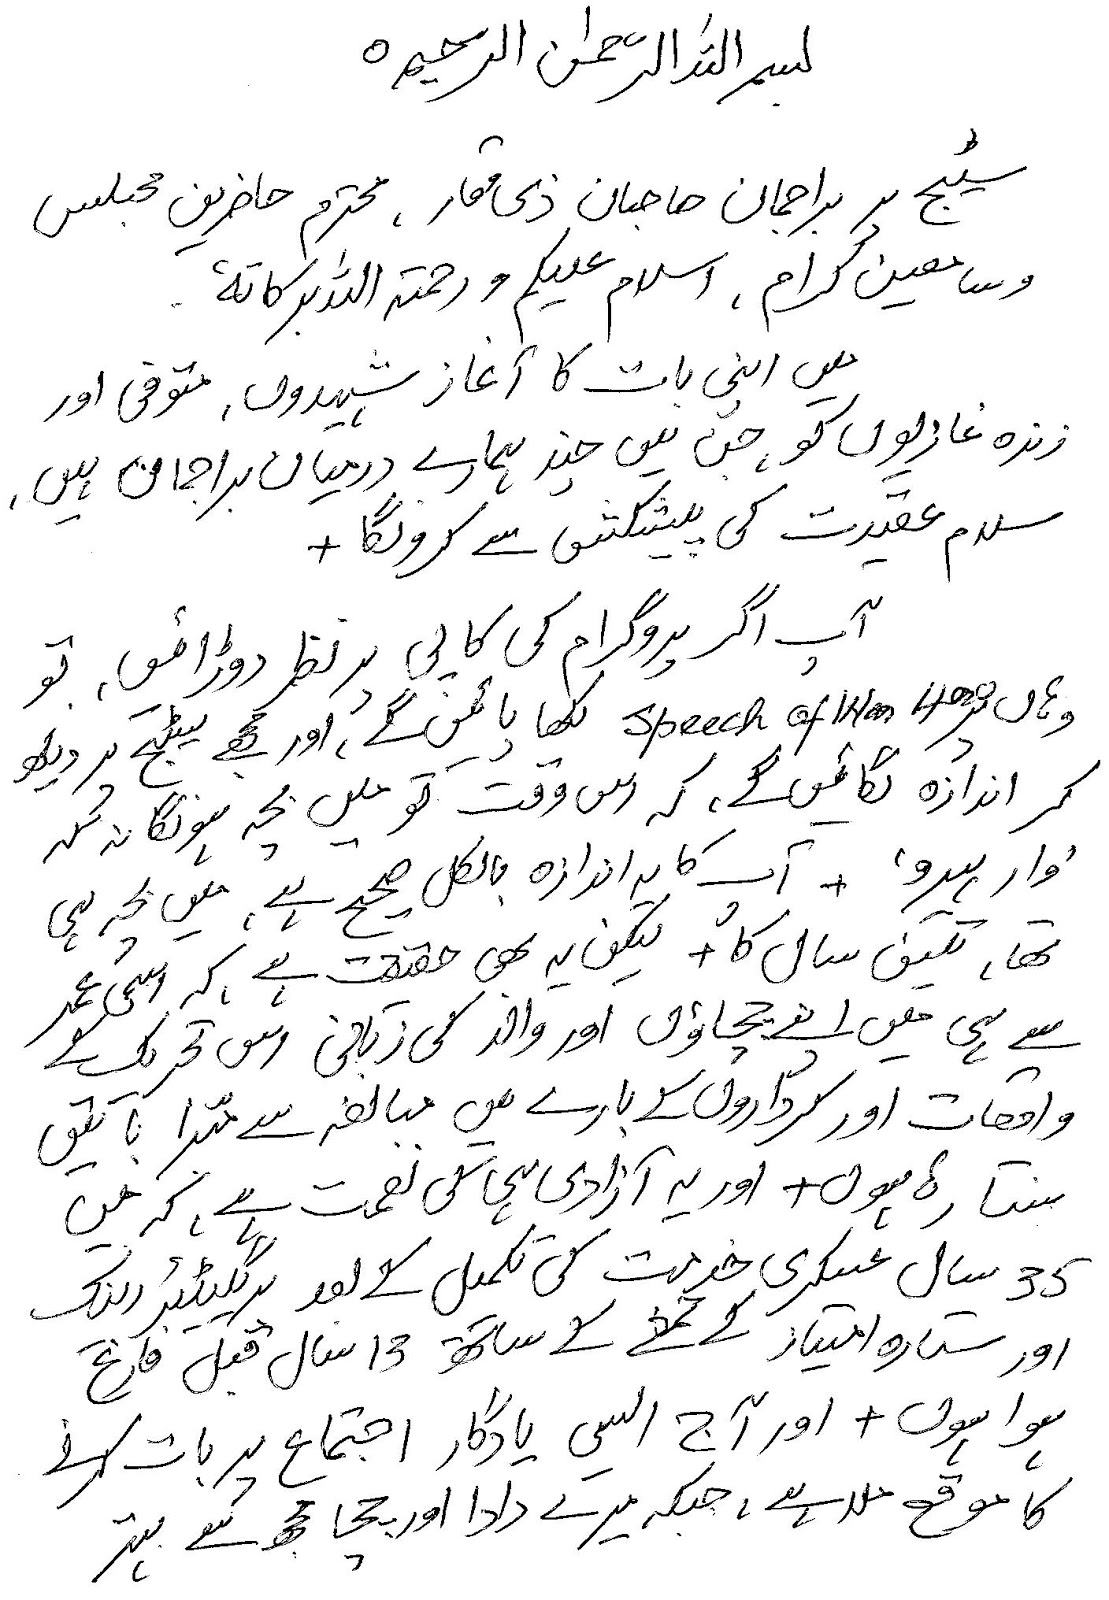 بسم اللہ الرحمٰن الرحیم ہ
سٹیج پر براجمان صاحبان ذی وقار ، محترم حاضرین مجلس
و سامعین کرام ، اسلام علیکم و رحمتہ اللہ برکاتہٗ ۔
میں اپنی بات کا آغاز شہیدوں ، متوفی اور
زندہ غازیوں کو ، جن میں چند ہمارے درمیان براجمان ہیں ،
سلام عقیدت کی پیشکش سے کرونگا +
آپ اگر پروگرام کی کاپی پر نظر دوڑائیں ، تو
وہاں پر Speech of War Hero لکھا پائیں گے ، اور مجھے سٹیج پر دیکھ
کر اندازہ لگائیں گے ، کہ اس وقت تو میں بچہ ہونگا نہ کہ
'وار ہیرو' + آپ کا یہ اندازہ بالکل صحیح ہے ، میں بچہ ہی
تھا ، تین سال کا + لیکن یہ بھی حقیقت ہے ، کہ اسی عمر
سے ہی میں اپنے چچاؤں اور والد کی زبانی اس تحریک کے
واقعات اور کرداروں کے بارے میں مبالغہ سے مبّرا باتیں
سنتا رہا ہوں + اور یہ آزادی ہی کی نعمت ہے ، کہ میں
35 سال عسکری خدمت کی تکمیل کے بعد بریگیڈیئر رینک
اور ستارہ امتیاز کے تمغے کے ساتھ 13 سال قبل فارغ
ہوا ہوں + اور آج ایسی یادگار اجتماع پر بات کرنے
کا موقع ملا ہے ، جبکہ میرے دادا اور چچا مجھ سے بہتر